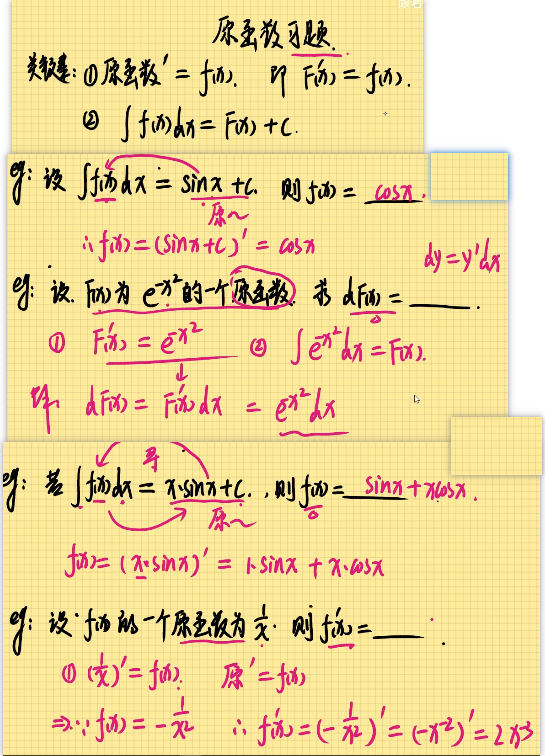 原函数习题.
关键: ① 原函数′ = f(x). 即 F′(x) = f(x).
② ∫ f(x)dx = F(x) + C.
eg: 设 ∫f(x)dx = sinx + C. 则 f(x) = cosx.
原~
∴ f(x) = (sinx+C)′ = cosx
dy = y′dx
eg: 设. F(x)为 e^{-x²} 的一个原函数. 求 dF(x) = ______.
① F′(x) = e^{-x²} ② ∫e^{-x²}dx = F(x).
即 dF(x) = F′(x)dx = e^{-x²}dx
导
eg: 若 ∫f(x)dx = x·sinx + C. , 则 f(x) = sinx + xcosx.
原~
f(x) = (x·sinx)′ = 1·sinx + x·cosx
eg: 设 f(x) 的一个原函数为 1/x. 则 f′(x) = ____ .
① (1/x)′ = f(x). 原′ = f(x)
⇒ ∵ f(x) = -1/x² ∴ f′(x) = (-1/x²)′ = (-x^{-2})′ = 2x^{-3}